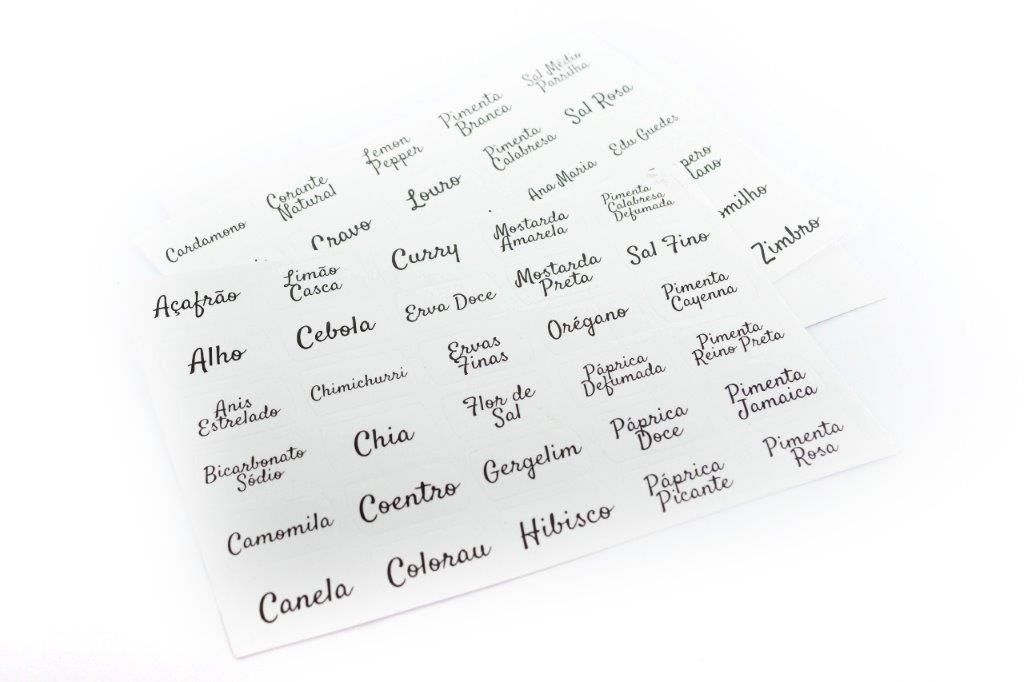 Sal Médio
Parrilha
Pimenta
Branca
Sal Rosa
Lemon
Pepper
Pimenta
Calabresa
Edu Guedes
Corante
Natural
Louro
Ana Maria
Cardamono
Cravo
Zimbro
Açafrão
Limão
Casca
Curry
Mostarda
Amarela
Pimenta
Calabresa
Defumada
Alho
Cebola
Erva Doce
Mostarda
Preta
Sal Fino
Anis
Estrelado
Chimichurri
Ervas
Finas
Orégano
Pimenta
Cayenna
Bicarbonato
Sódio
Chia
Flor de
Sal
Páprica
Defumada
Pimenta
Reino Preta
Camomila
Coentro
Gergelim
Páprica
Doce
Pimenta
Jamaica
Canela
Colorau
Hibisco
Páprica
Picante
Pimenta
Rosa